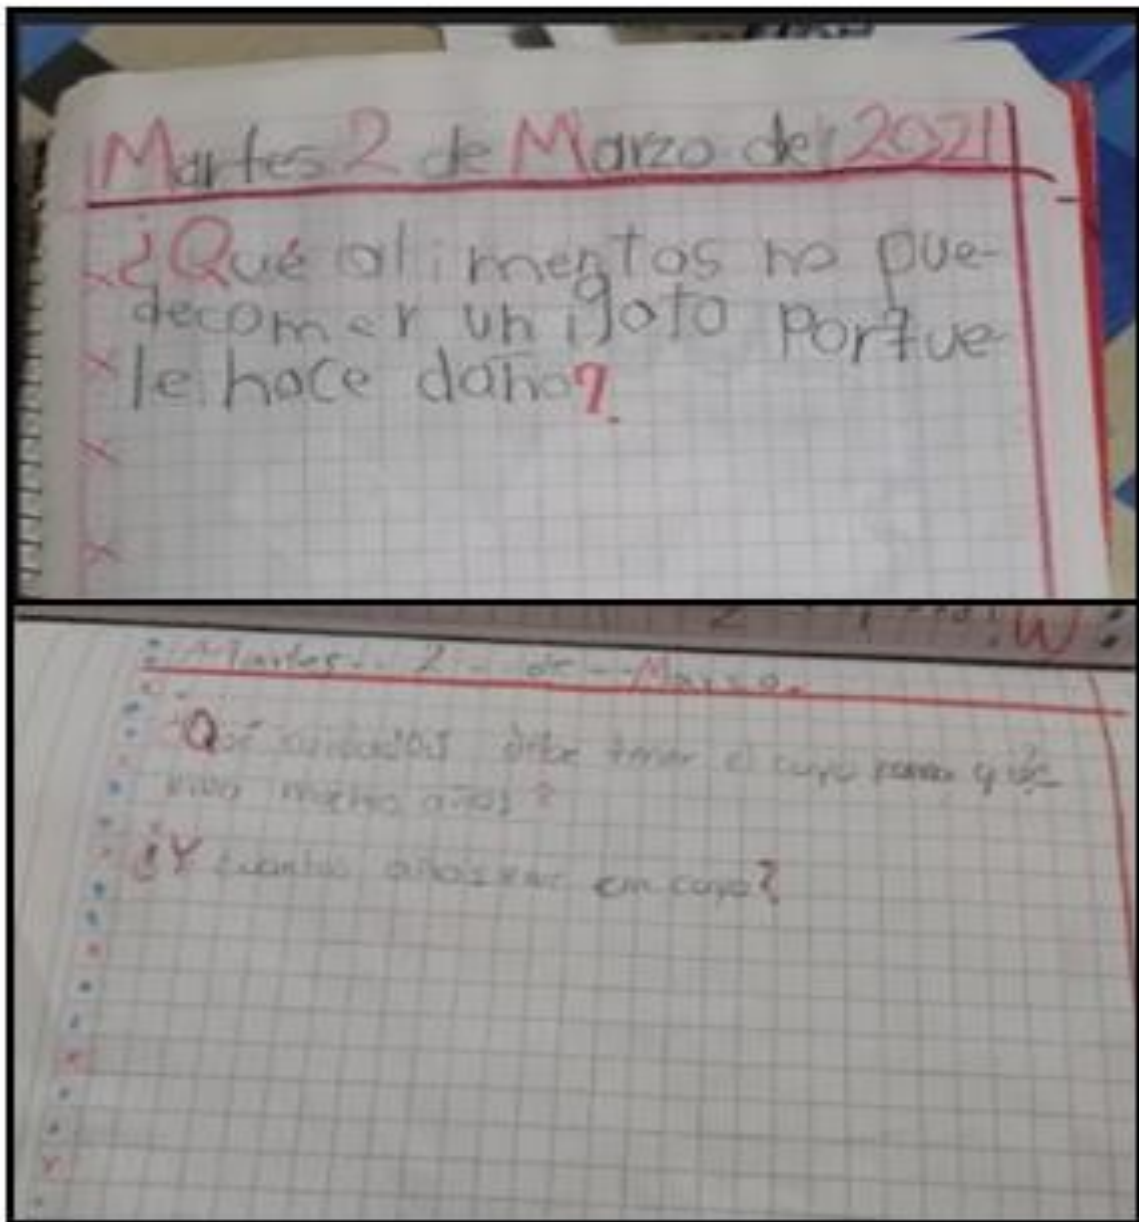 Martes 2 de Marzo del 2021
¿Qué alimentos no pue-
decomer un gato porque
le hace daño?
Martes 2 de Marzo.
Qué cuidados debe tener el cuyo para que
viva muchos años?
¿Y cuantos años vive em cuyo?